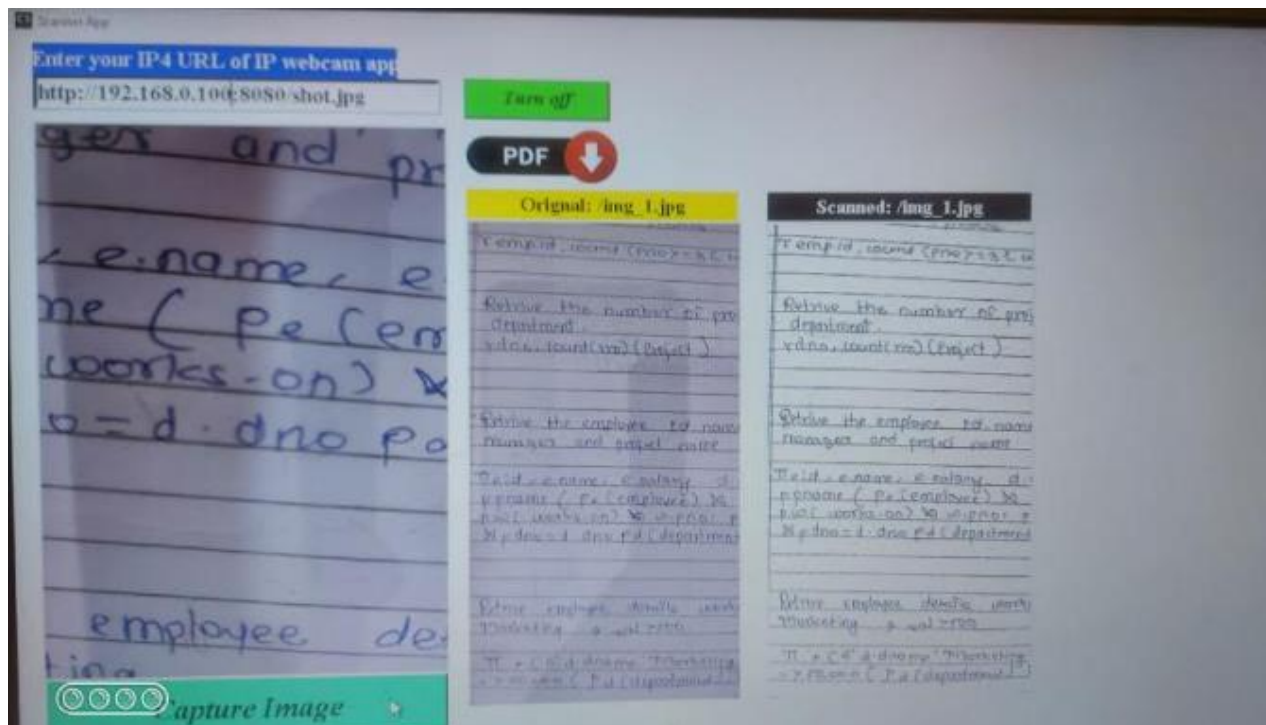 Scanner App
Enter your IP4 URL of IP webcam app
http://192.168.0.100:8080/shot.jpg
Turn off
PDF
ger and pr
, e.name, e
me ( Pe (em
works-on) ⋈
o = d . dno Pd
employee de
ting
Capture Image
Orignal: /img_1.jpg
r empid, count (pno)
Retrive the number of pro
department.
r dno, count(pno) (Project)
Retrive the employee Id, name
manager and project name
e.name, e.salary, d.
p.pname ( Pe (employee) ⋈
works-on) ⋈
dno = d . dno Pd (department
Retrive employee details
Marketing
Scanned: /img_1.jpg
r empid, count (pno)
Retrive the number of proj
department.
r dno, count(pno) (Project)
Retrive the employee Id, name
manager and project name
e.name, e.salary, d.
p.pname ( Pe (employee) ⋈
works-on) ⋈
dno = d . dno Pd (department
Retrive employee details
Marketing